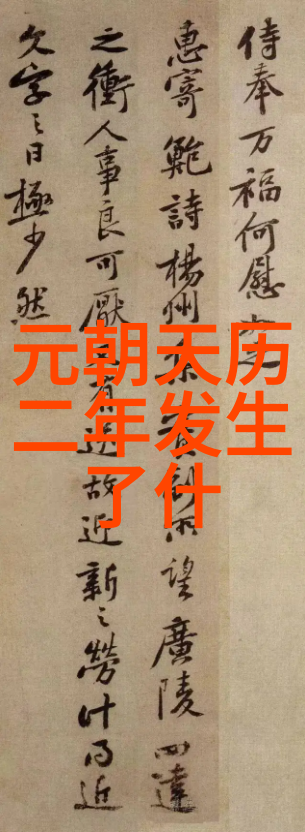 侍奉万福何慰
惠寄鲍詩楊州 望廣陵四達
之衝人事良可厭 故近新之勞計 近
欠字之日極少然
元朝天历
二年发生
了什